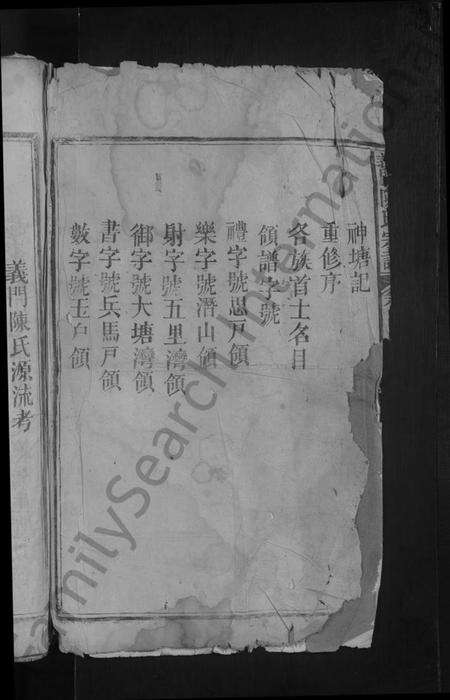 神塘記
重修序
各族首士名目
領譜字號
禮字號思戶領
樂字號潛山領
射字號五里灣領
御字號大塘灣領
書字號兵馬戶領
數字號玉戶領
義門陳氏源流考
FamilySearch International